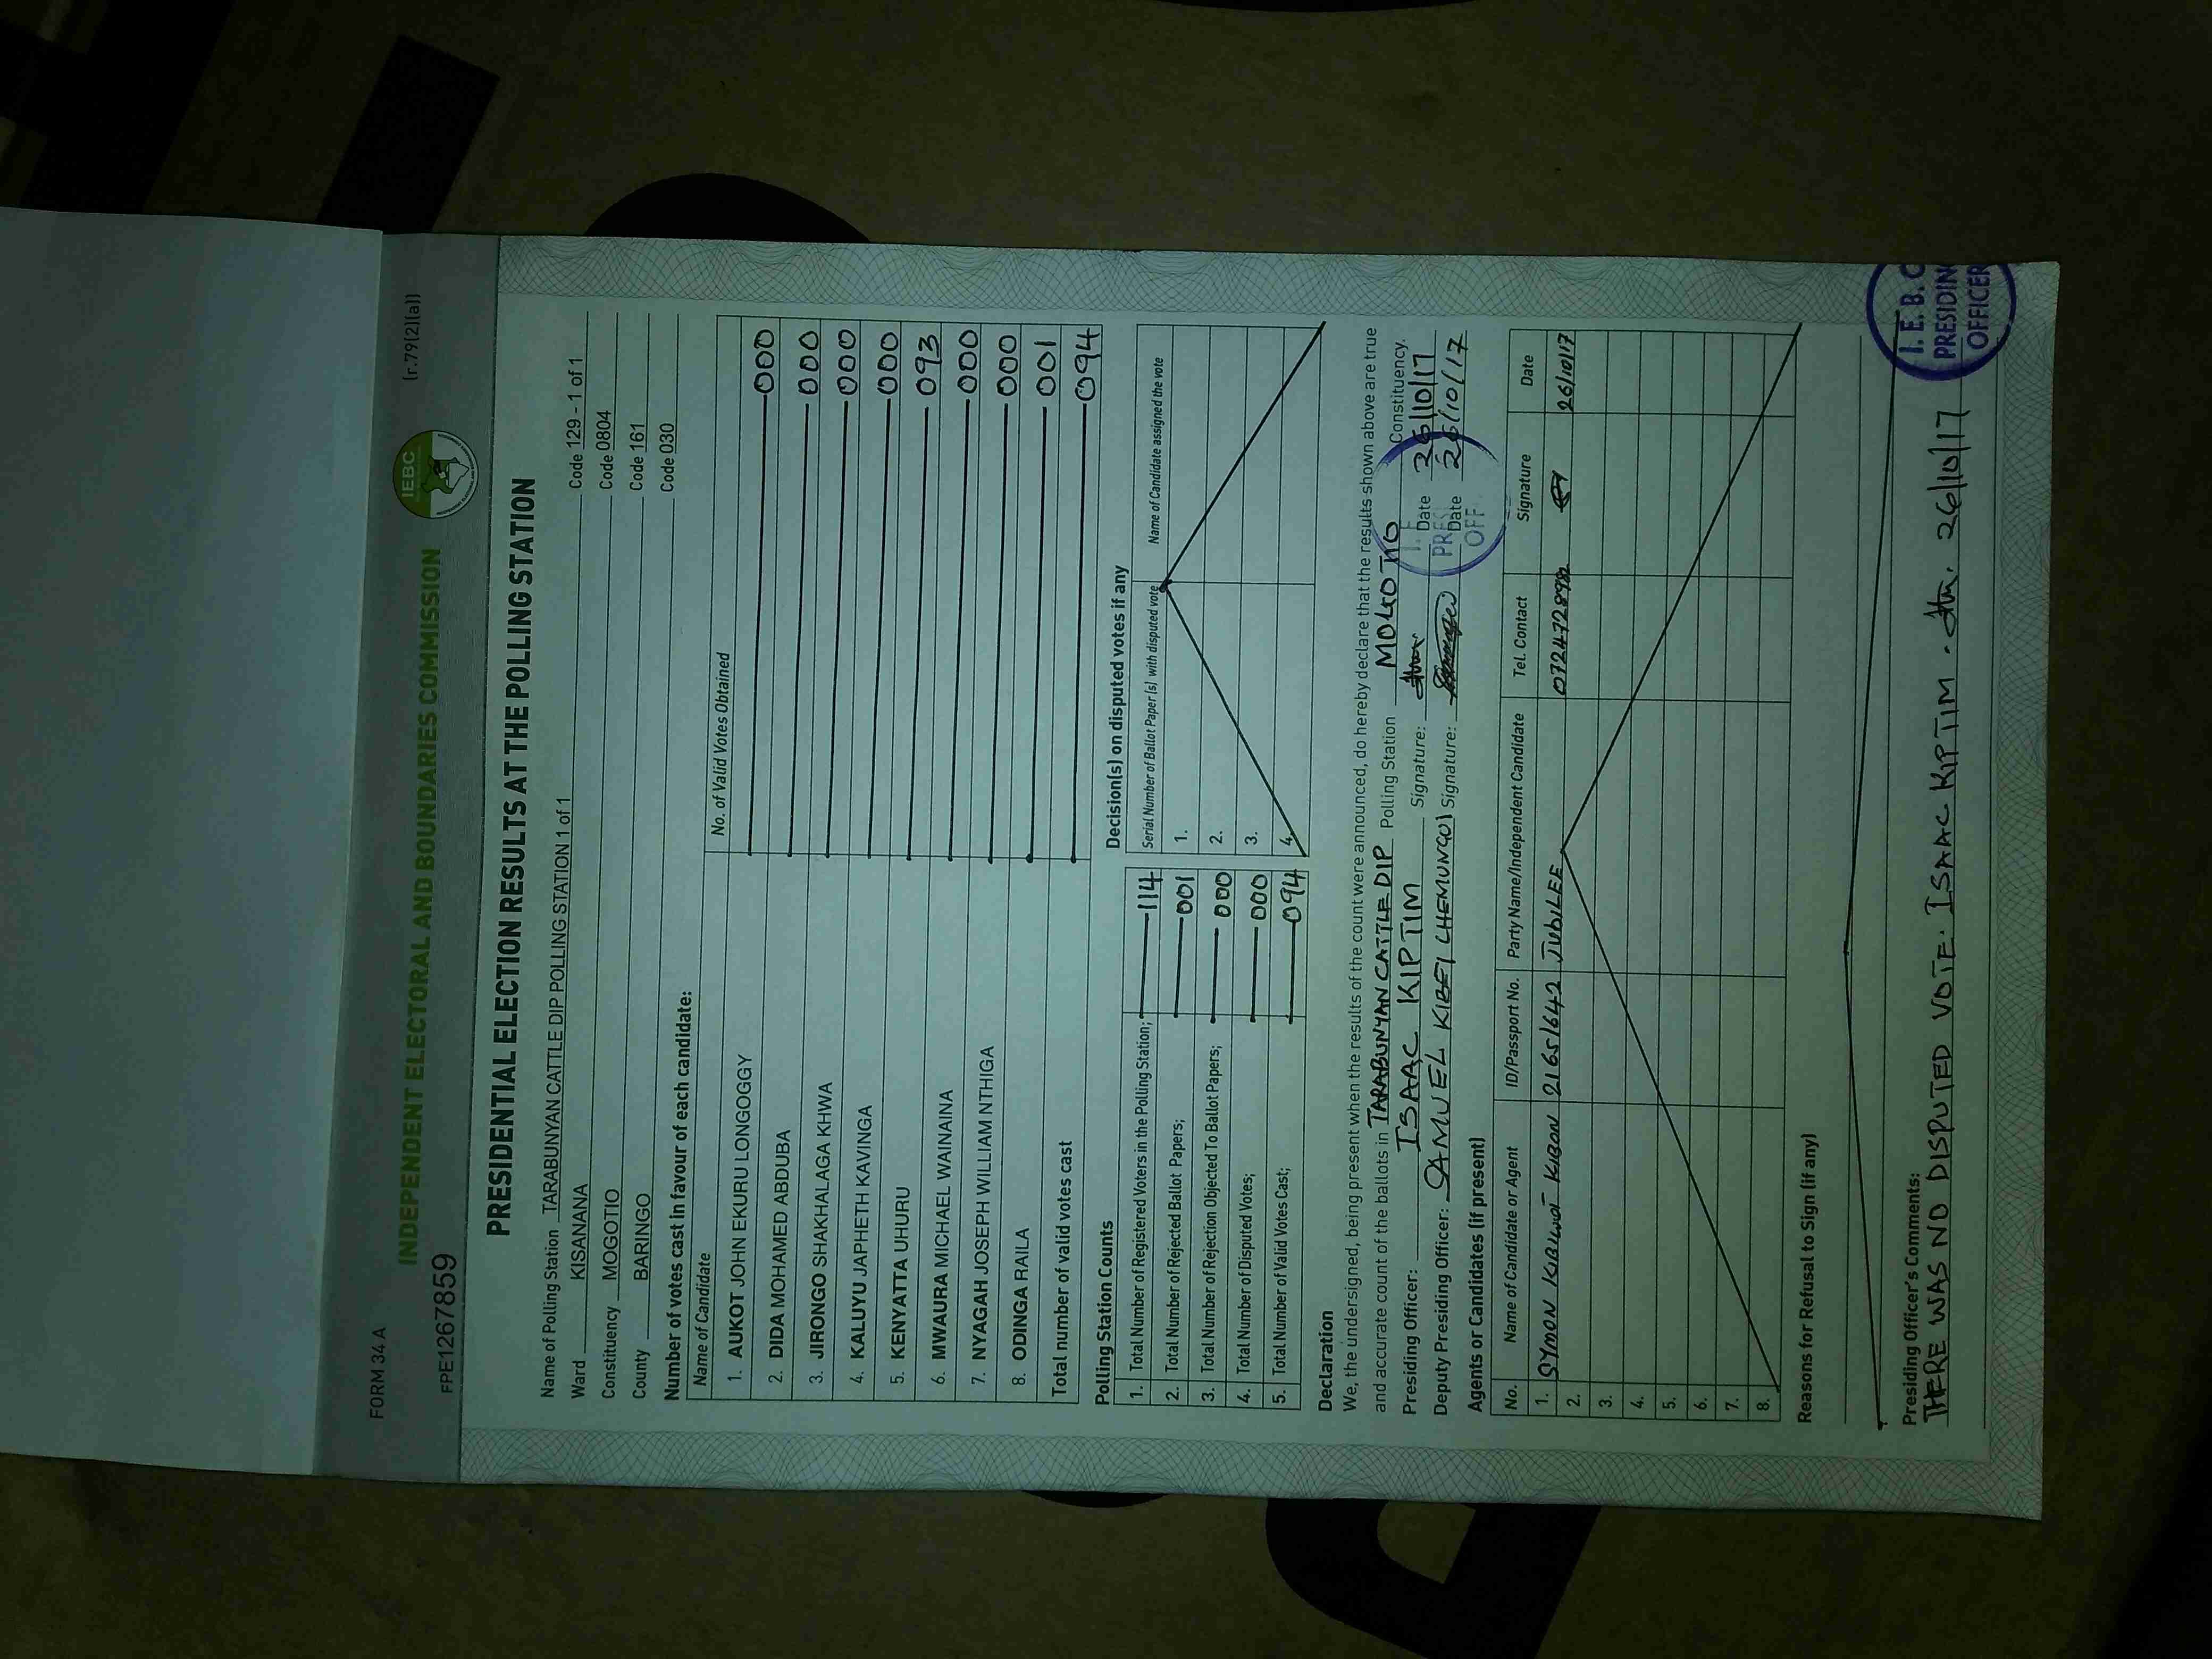 FORM 34 A (r.79(2)(a))
IEBC
INDEPENDENT ELECTORAL AND BOUNDARIES COMMISSION
FPE1267859
PRESIDENTIAL ELECTION RESULTS AT THE POLLING STATION
Name of Polling Station TARABUNYAN CATTLE DIP POLLING STATION 1 of 1 Code 129 - 1 of 1
Ward KISANANA Code 0804
Constituency MOGOTIO Code 161
County BARINGO Code 030
Number of votes cast in favour of each candidate:
Name of Candidate No. of Valid Votes Obtained
1. AUKOT JOHN EKURU LONGOGGY 000
2. DIDA MOHAMED ABDUBA 000
3. JIRONGO SHAKHALAGA KHWA 000
4. KALUYU JAPHETH KAVINGA 000
5. KENYATTA UHURU 093
6. MWAURA MICHAEL WAINAINA 000
7. NYAGAH JOSEPH WILLIAM NTHIGA 000
8. ODINGA RAILA 001
Total number of valid votes cast 094
Polling Station Counts
1. Total Number of Registered Voters in the Polling Station; 114
2. Total Number of Rejected Ballot Papers; 001
3. Total Number of Rejection Objected To Ballot Papers; 000
4. Total Number of Disputed Votes; 000
5. Total Number of Valid Votes Cast; 094
Decision(s) on disputed votes if any
Serial Number of Ballot Paper(s) with disputed vote Name of Candidate assigned the vote
1.
2.
3.
4.
Declaration
We, the undersigned, being present when the results of the count were announced, do hereby declare that the results shown above are true
and accurate count of the ballots in TARABUNYAN CATTLE DIP Polling Station MOGOTIO Constituency.
Presiding Officer: ISAAC KIPTIM Signature: Date 26/10/17
Deputy Presiding Officer: SAMUEL KIBEI CHEMUNGOI Signature: Date 26/10/17
Agents or Candidates (if present)
No. Name of Candidate or Agent ID/Passport No. Party Name/Independent Candidate Tel. Contact Signature Date
1. SYMON KIBIWOT KIBON 21651642 JUBILEE 26/10/17
2.
3.
4.
5.
6.
7.
8.
Reasons for Refusal to Sign (if any)
Presiding Officer's Comments:
THERE WAS NO DISPUTED VOTE: ISAAC KIPTIM. 26/10/17
I.E.B.C
PRESIDIN
OFFICER